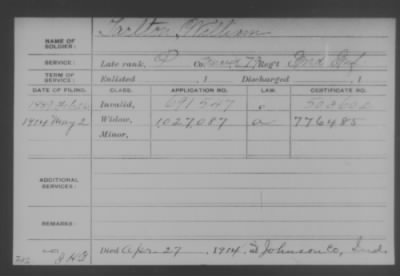 Tarlton, William
NAME OF SOLDIER:
SERVICE: Late rank, P Co. Reg't Ind. Inf.
TERM OF SERVICE: Enlisted , 1 Discharged , 1
DATE OF FILING. CLASS. APPLICATION NO. LAW. CERTIFICATE NO.
Invalid, 691547 503602
1914 May 2 Widow, 1027087 a 776485
Minor,
ADDITIONAL SERVICES:
REMARKS:
Died Apr. 27, 1914, Johnson Co, Ind.